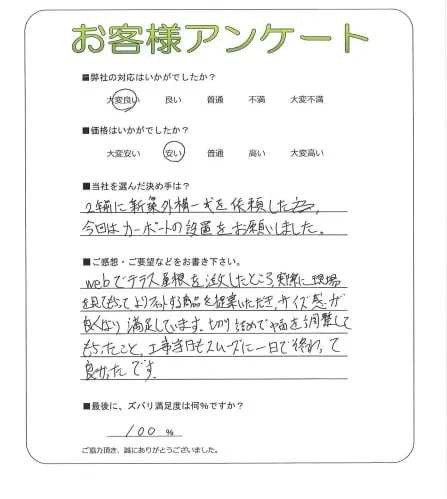 お客様アンケート
■弊社の対応はいかがでしたか？
大変良い 良い 普通 不満 大変不満
■価格はいかがでしたか？
大変安い 安い 普通 高い 大変高い
■当社を選んだ決め手は？
2年前に新築外構一式を依頼した為、
今回はカーポートの設置をお願いしました。
■ご感想・ご要望などをお書き下さい。
webでテラス屋根を注文したところ実際に現場
を見てもらってよりフィットする商品を提案いただき、サイズ感が
良くなり満足しています。切り詰めで巾を調整して
もらったこと、工事当日もスムーズに一日で終わって
良かったです。
■最後に、ズバリ満足度は何%ですか？
100 %
ご協力頂き、誠にありがとうございました。